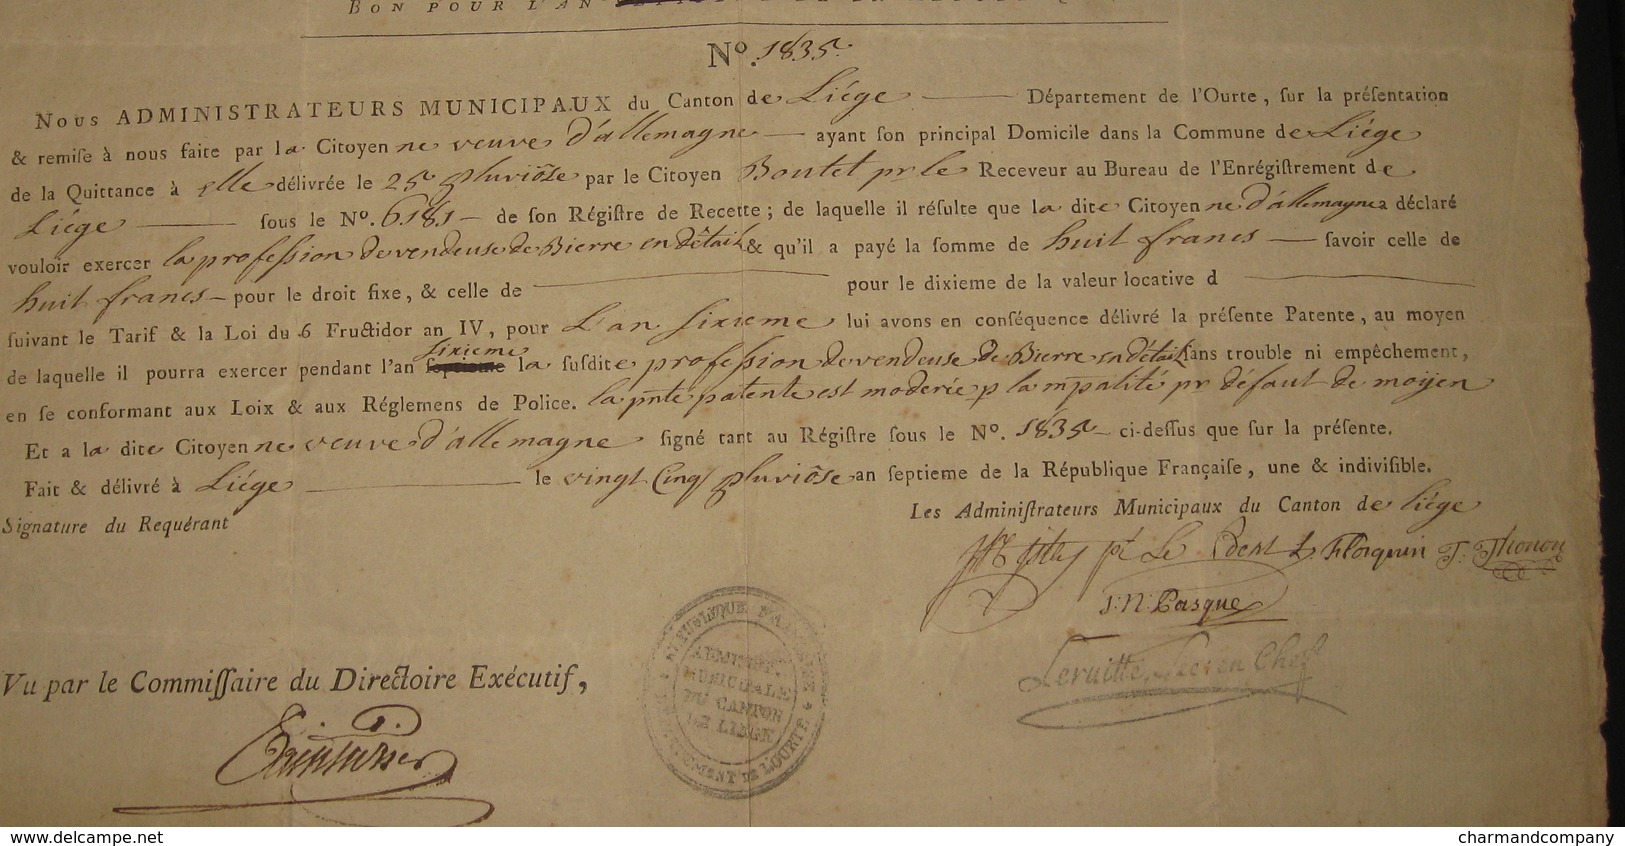 BON POUR L'AN
Nº. 1835
NOUS ADMINISTRATEURS MUNICIPAUX du Canton de Liége Département de l'Ourte, ſur la préſentation
& remiſe à nous faite par la Citoyenne veuve d'allemagne ayant ſon principal Domicile dans la Commune de Liége
de la Quittance à elle délivrée le 25 pluviôse par le Citoyen Boutet pr le Receveur au Bureau de l'Enrégiſtrement de
Liége ſous le Nº. 6181 de ſon Régiſtre de Recette; de laquelle il réſulte que la dite Citoyenne d'allemagne a déclaré
vouloir exercer la profeſsion de vendeuse de Bierre en détail & qu'il a payé la ſomme de huit francs ſavoir celle de
huit francs pour le droit fixe, & celle de pour le dixieme de la valeur locative d
ſuivant le Tarif & la Loi du 6 Fructidor an IV, pour L'an ſixieme lui avons en conſéquence délivré la préſente Patente, au moyen
de laquelle il pourra exercer pendant l'an ſeptieme ſixieme la ſuſdite profeſsion de vendeuse de Bierre en détail ſans trouble ni empêchement,
en ſe conformant aux Loix & aux Réglemens de Police. la pnte patente est moderée p la mpalité pr défaut de moÿen
Et a la dite Citoyenne veuve d'allemagne ſigné tant au Régiſtre ſous le Nº. 1835 ci-deſſus que ſur la préſente.
Fait & délivré à Liége le vingt Cinq pluviôse an ſeptieme de la République Françaiſe, une & indiviſible.
Signature du Requérant
Les Adminiſtrateurs Municipaux du Canton de liége
Florquin T. Thonon
J. N. Pasque
Vu par le Commiſſaire du Directoire Exécutif,
Leruitte, Secr en Chef
REPUBLIQUE FRANÇAISE
DEPARTEMENT DE L'OURTE
ADMINIST.
MUNICIPALE
DU CANTON
DE LIEGE
www.delcampe.net
charmandcompany